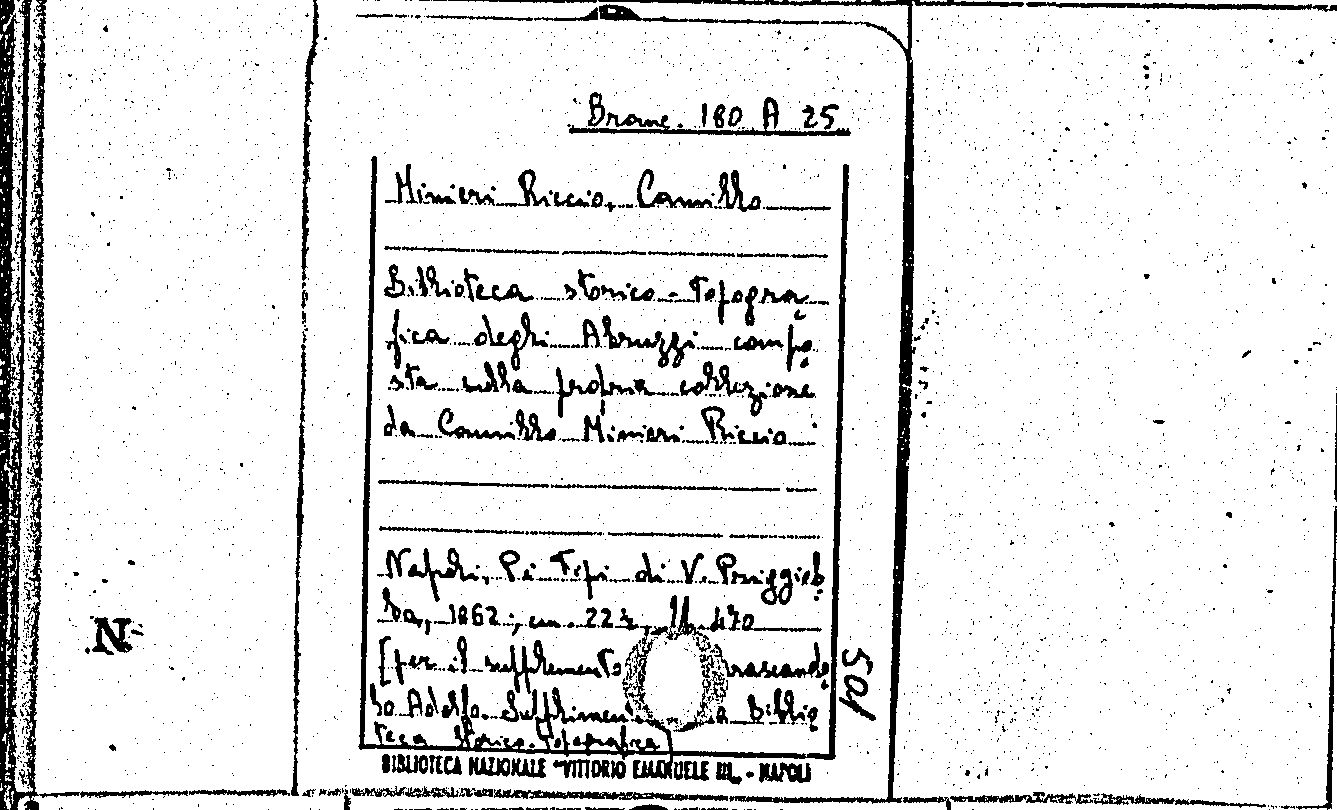 Branc. 180 A 25
Minieri Riccio, Camillo
Biblioteca storico-topogra
fica degli Abruzzi compo
sta sulla propria collezione
da Camillo Minieri Riccio
Napoli, Pei Tipi di V. Priggiob
ba, 1862; cm. 22½, 470
[per il supplemento
lo Adolfo. Biblio
teca Storico-topografica]
501
N
BIBLIOTECA NAZIONALE "VITTORIO EMANUELE III" - NAPOLI